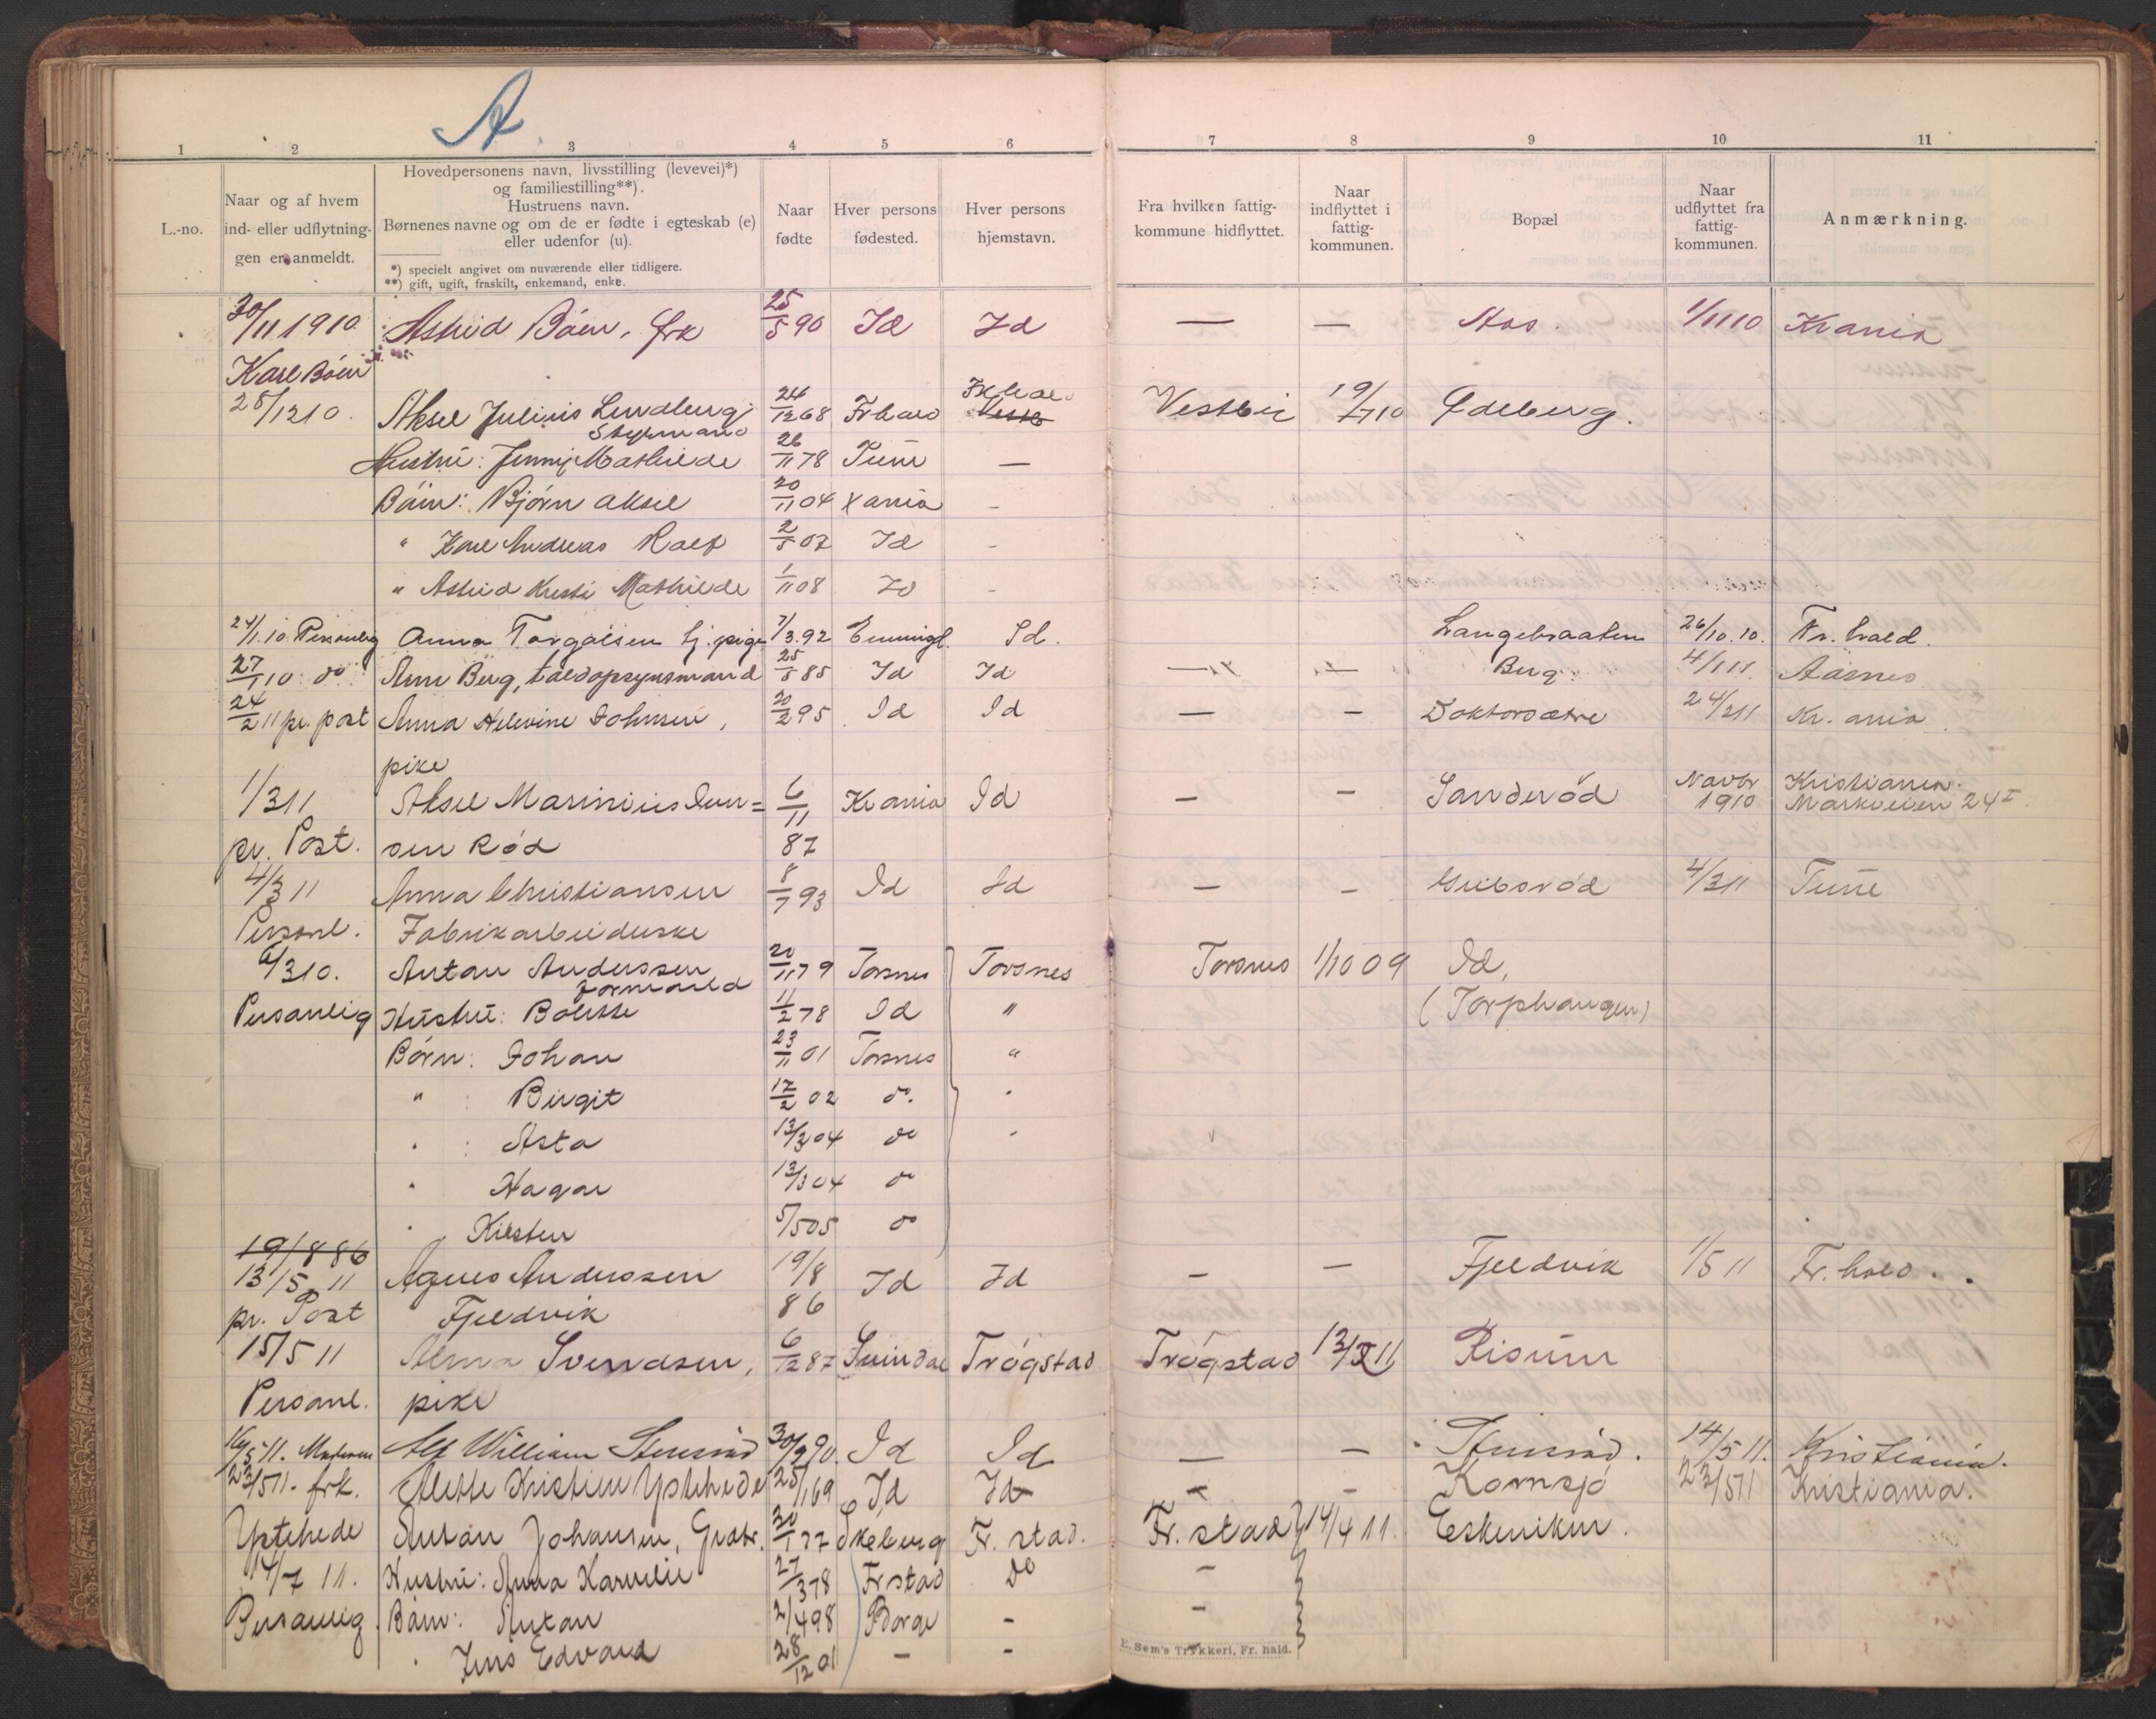 A.
1 2 3 4 5 6 7 8 9 10 11
L.-no.
Naar og af hvem
ind- eller udflytnin-
gen er anmeldt.
Hovedpersonens navn, livsstilling (levevei)*)
og familiestilling**).
Hustruens navn.
Børnenes navne og om de er fødte i egteskab (e)
eller udenfor (u).
*) specielt angivet om nuværende eller tidligere.
**) gift, ugift, fraskilt, enkemand, enke.
Naar
fødte
Hver persons
fødested.
Hver persons
hjemstavn.
Fra hvilken fattig-
kommune hidflyttet.
Naar
indflyttet i
fattig-
kommunen.
Bopæl
Naar
udflyttet fra
fattig-
kommunen.
Anmærkning.
30/11 1910 Astrid Böen, frk 25/5 90 Id Id — — Aas. 1/11 10 Kr ania
Karl Böen
28/12 10. Aksel Julius Lundberg 24/12 68 Frhald Frhald Vestb Vestbü 19/7 10 Ødeberg.
Styrmand
Hustrü: Jenny Mathilde 26/11 78 Tune —
Börn: Bjørn Aksel 20/11 04 Xania -
" Karl Andreas Ralf 2/5 07 Id -
" Astrid Kristi Mathilde 1/11 08 Id -
24/11.10. Personlig Anna Torgalsen tj. pige 7/3.92 Enningd. Id. Langebraaten 26/10.10. Fr. hald.
27/1 10 do Arne Berg, toldopsynsmand 25/5 85 Id Id — — Berg. 4/1 11. Aasnes
24/2 11 pr. post Anna Helevine Johnsen, 20/2 95 Id Id — — Doktorsætre 24/2 11 Kr. ania
pike
1/3 11 Aksel Marinius Iver= 6/11 Kr ania Id — — Sanderød Novbr 1910 Kristiania. Markveien 24 I
pr. Post. sen Rød 87
4/3 11 Anna Christiansen 8/7 93 Id Id — — Guibsrød 4/3 11 Tune
Personl. Fabrikarbeiderske
6/3 10. Anton Anderssen 20/11 79 Torsnes Torsnes Torsnes 1/10 09 Id,
formand
Personlig Hustrü: Bolette 11/2 78 Id " (Torphaugen)
Börn: Johan 23/11 01 Torsnes "
" : Birgit 17/2 02 do. "
" : Asta 13/3 04 do "
" Hagar 13/3 04 do
" Kirsten 5/5 05 do
19/8 86
13/5 11 Agnes Anderssen 19/8 Id Id — — Fjeldvik 1/5 11 Fr. hald.
pr. Post Fjeldvik 86
15/5 11 Alma Svendsen, 6/12 87 Svindal Trögstad Trögstad 13/5 11 Risum
Personl. pike
16/5 11. Alf William Stenrød 30/9 90. Id Id — — Stenrød. 14/5 11. Kristiania.
23/5 11. frk. Alette Kristine Ystehede 25/1 69 Id Id - - Kornsjø 23/5 11 Kristiania.
Ystehede Anton Johansen, Grovr. 30/1 77 Skeberg Fr. stad. Fr. stad 14/4 11. Eskeviken.
14/7 11. Hustrü: Anna Karnelie 27/3 78 Frstad Do -
Personlig Börn: Anton 2/4 98 Borge - -
" Jens Edvard 28/12 01 - - -
E. Sem's Trykkeri, Fr. hald.